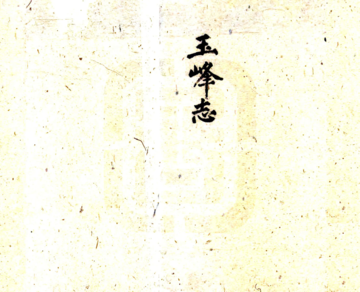 玉峰志